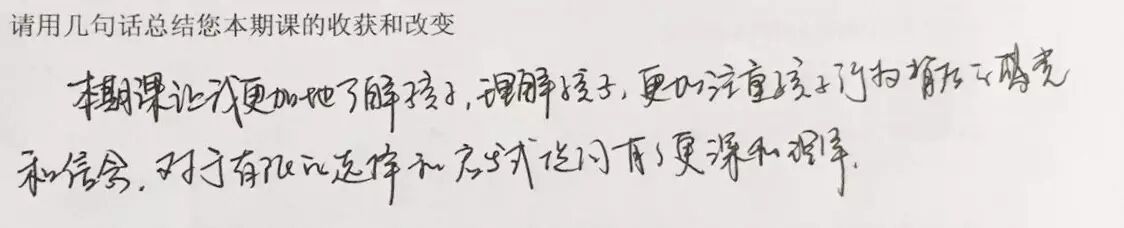 请用几句话总结您本期课的收获和改变
本期课让我更加地了解孩子,理解孩子,更加注重孩子行为背后的感觉
和信念。对于有限的选择和启发式提问有了更深的理解.